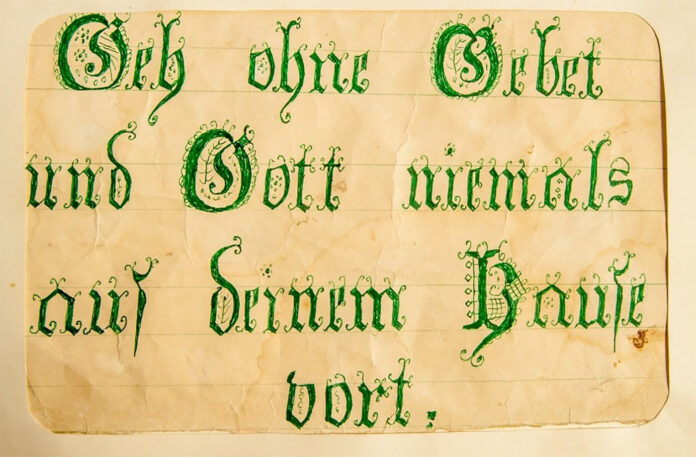 Geh ohne Gebet
und Gott niemals
auſ deinem Hauſe
vort.